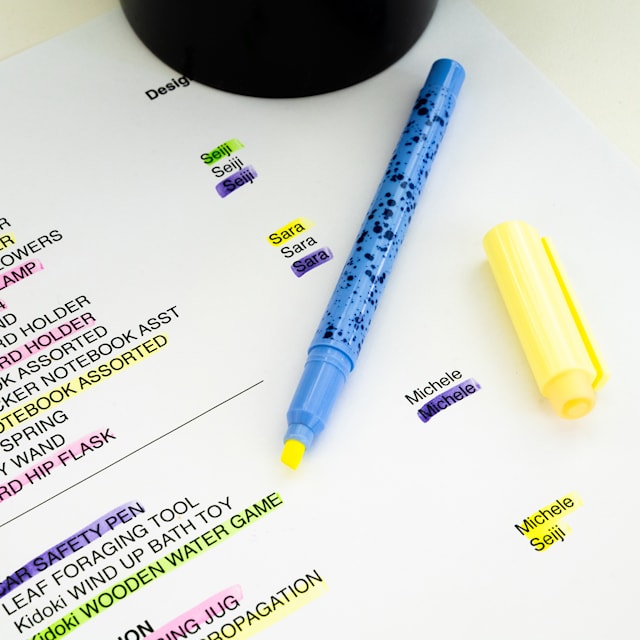 Design
Seiji
Seiji
Seiji
Sara
Sara
Sara
Michele
Michele
Michele
Seiji
LOWERS
LAMP
RD HOLDER
RD HOLDER
OK ASSORTED
CKER NOTEBOOK ASST
OTEBOOK ASSORTED
SPRING
Y WAND
RD HIP FLASK
CAR SAFETY PEN
LEAF FORAGING TOOL
Kidoki WIND UP BATH TOY
Kidoki WOODEN WATER GAME
ION
ING JUG
PROPAGATION